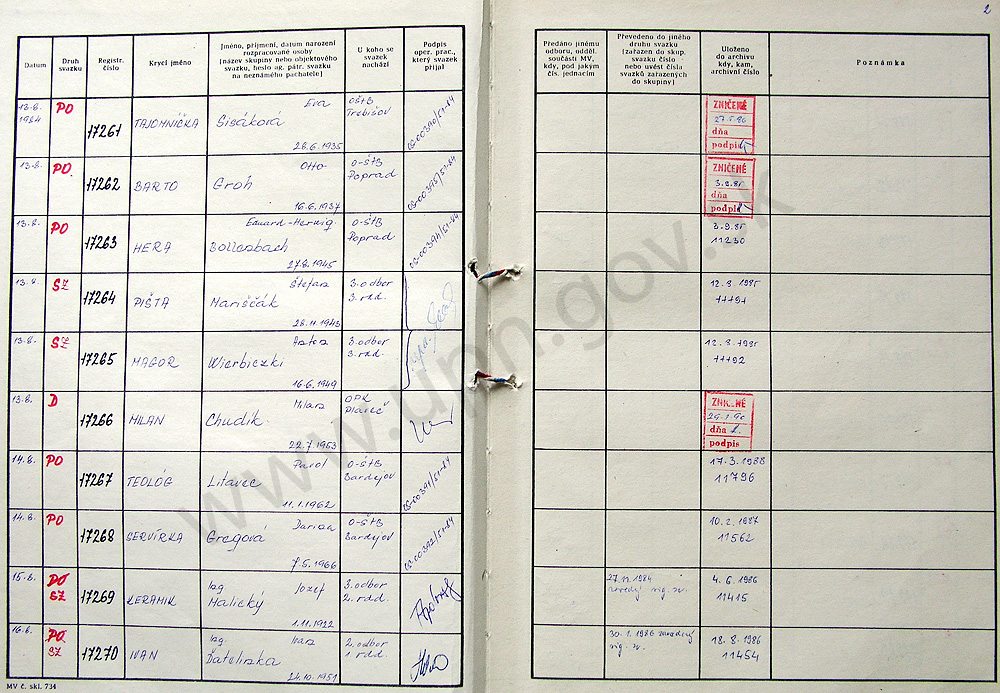 2
Datum
Druh svazku
Registr. číslo
Krycí jméno
Jméno, příjmení, datum narození
rozpracované osoby
(název skupiny nebo objektového
svazku, heslo ag. pátr. svazku
na neznámého pachatele)
U koho se svazek nachází
Podpis oper. prac., který svazek přijal
Předáno jinému
odboru, odděl.
součásti MV,
kdy, pod jakým
čís. jednacím
Převedeno do jiného
druhu svazku
(zařazen do skup.
svazku číslo
nebo uvést čísla
svazků zařazených
do skupiny)
Uloženo
do archivu
kdy, kam,
archivní číslo
Poznámka
13.8. 1984 PO 17261 TAJOMNÍČKA Eva
Sisáková
28.6.1935
OŠtB Trebišov
ZNIČENÉ
dňa
podpis
13.8. PO 17262 BARTO Otto
Groh
16.6.1937
O-ŠtB Poprad
ZNIČENÉ
3.9.85
dňa
podpis
13.8. PO 17263 HERA Eduard-Herwig
Bollenbach
27.8.1945
O-ŠtB Poprad
3.9.85
11230
13.8. SZ 17264 PIŠTA Štefan
Mariščák
28.11.1943
3.odbor 3.rdd.
12.8.1985
13.8. 17265 MAGOR
Wierbiczki
16.6.1949
3.odbor 3.rdd.
12.8.1985
13.8. D 17266 MILAN Milan
Chudík
22.7.1953
OPK Plaveč
dňa
podpis
14.8. PO 17267 TEOLÓG Pavol
Litavec
11.1.1962
O-ŠtB Bardejov
17.3.1988
11796
14.8. PO 17268 SERVÍRKA Darina
Gregová
7.5.1966
O-ŠtB Bardejov
10.2.1987
11562
15.8. PO SZ 17269 KERAMIK Ing. Jozef
Halický
1.11.1922
3.odbor 2.rdd.
4.6.1986
11415
16.8. PO SZ 17270 IVAN Ing. Ivan
Ďatelinka
24.10.1951
2.odbor 1.rdd.
30.1.1986
18.8.1986
11454
MV č. skl. 734
www.upn.gov.sk